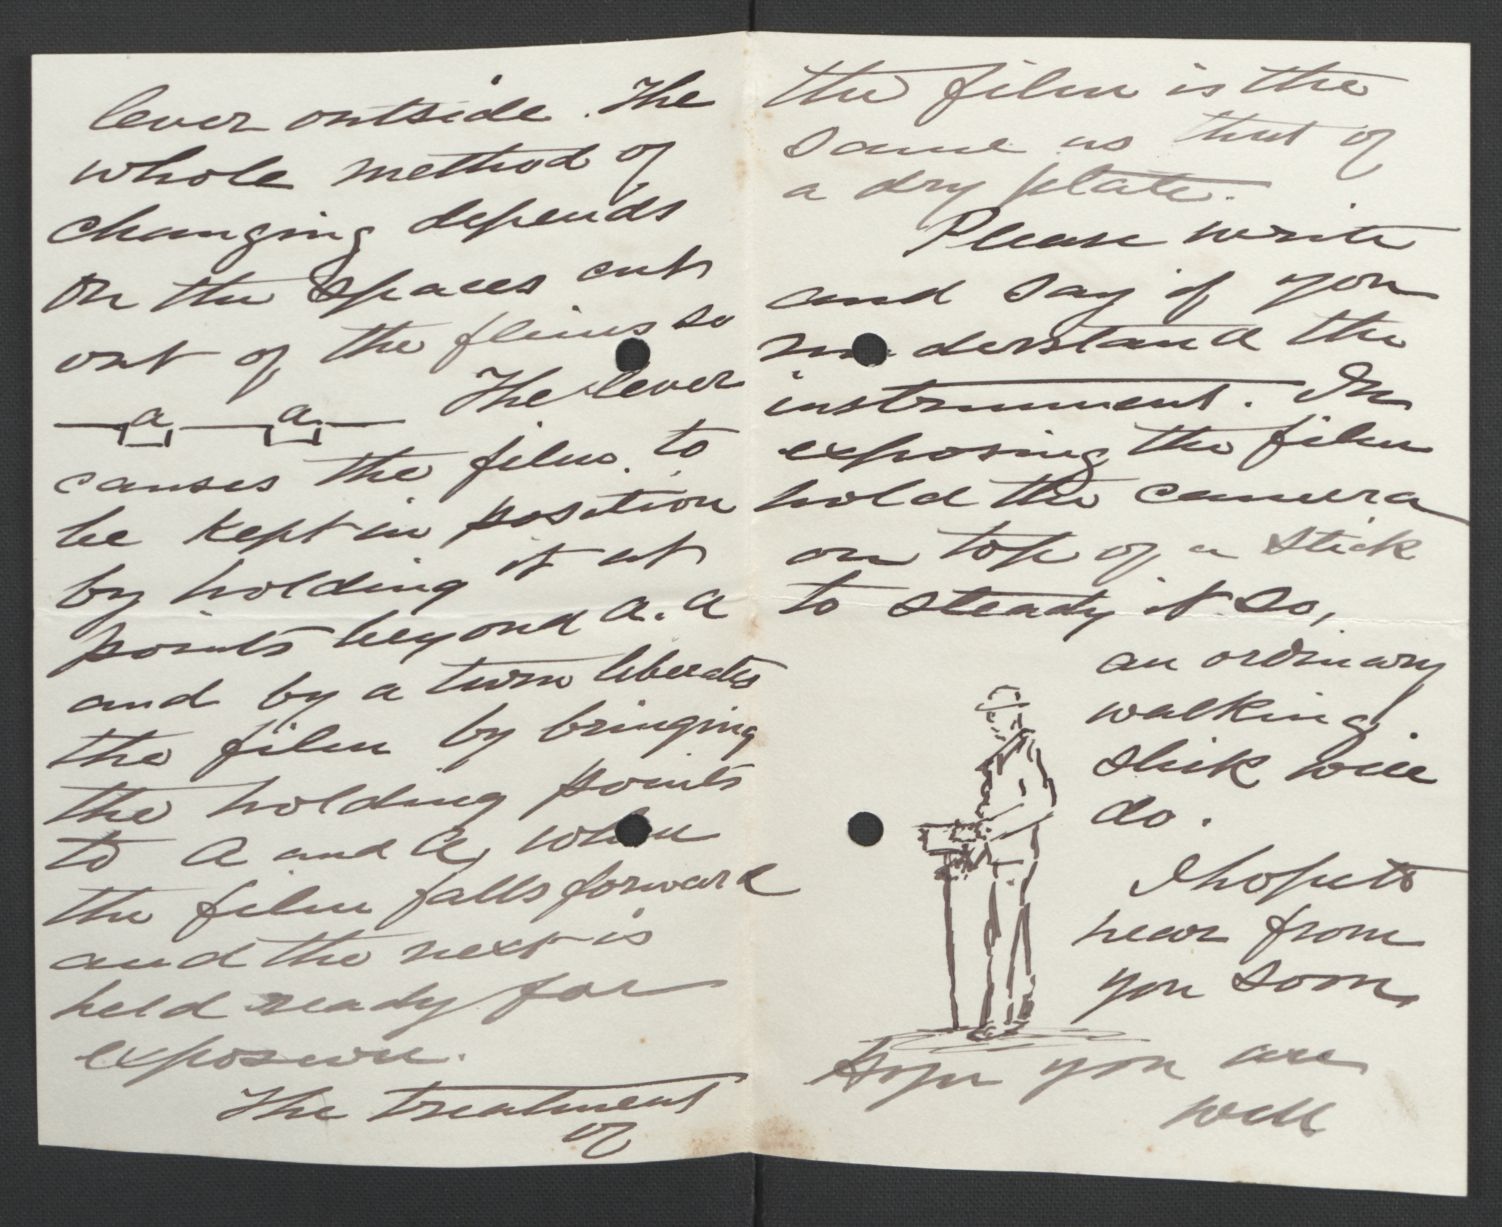 lever outside. The
whole method of
changing depends
on the spaces cut
out of the films so
a a The lever
causes the film to
be kept in position
by holding it at
points beyond a. a
and by a turn liberates
the film by bringing
the holding points
to a and a, when
the film falls forward
and the next is
held ready for
exposure.
The treatment
of
the film is the
same as that of
a dry plate.
Please write
and say if you
understand the
instrument. In
exposing the film
hold the camera
on top of a stick
to steady it so,
an ordinary
walking
stick will
do.
I hope to
hear from
you soon,
Hope you are
well